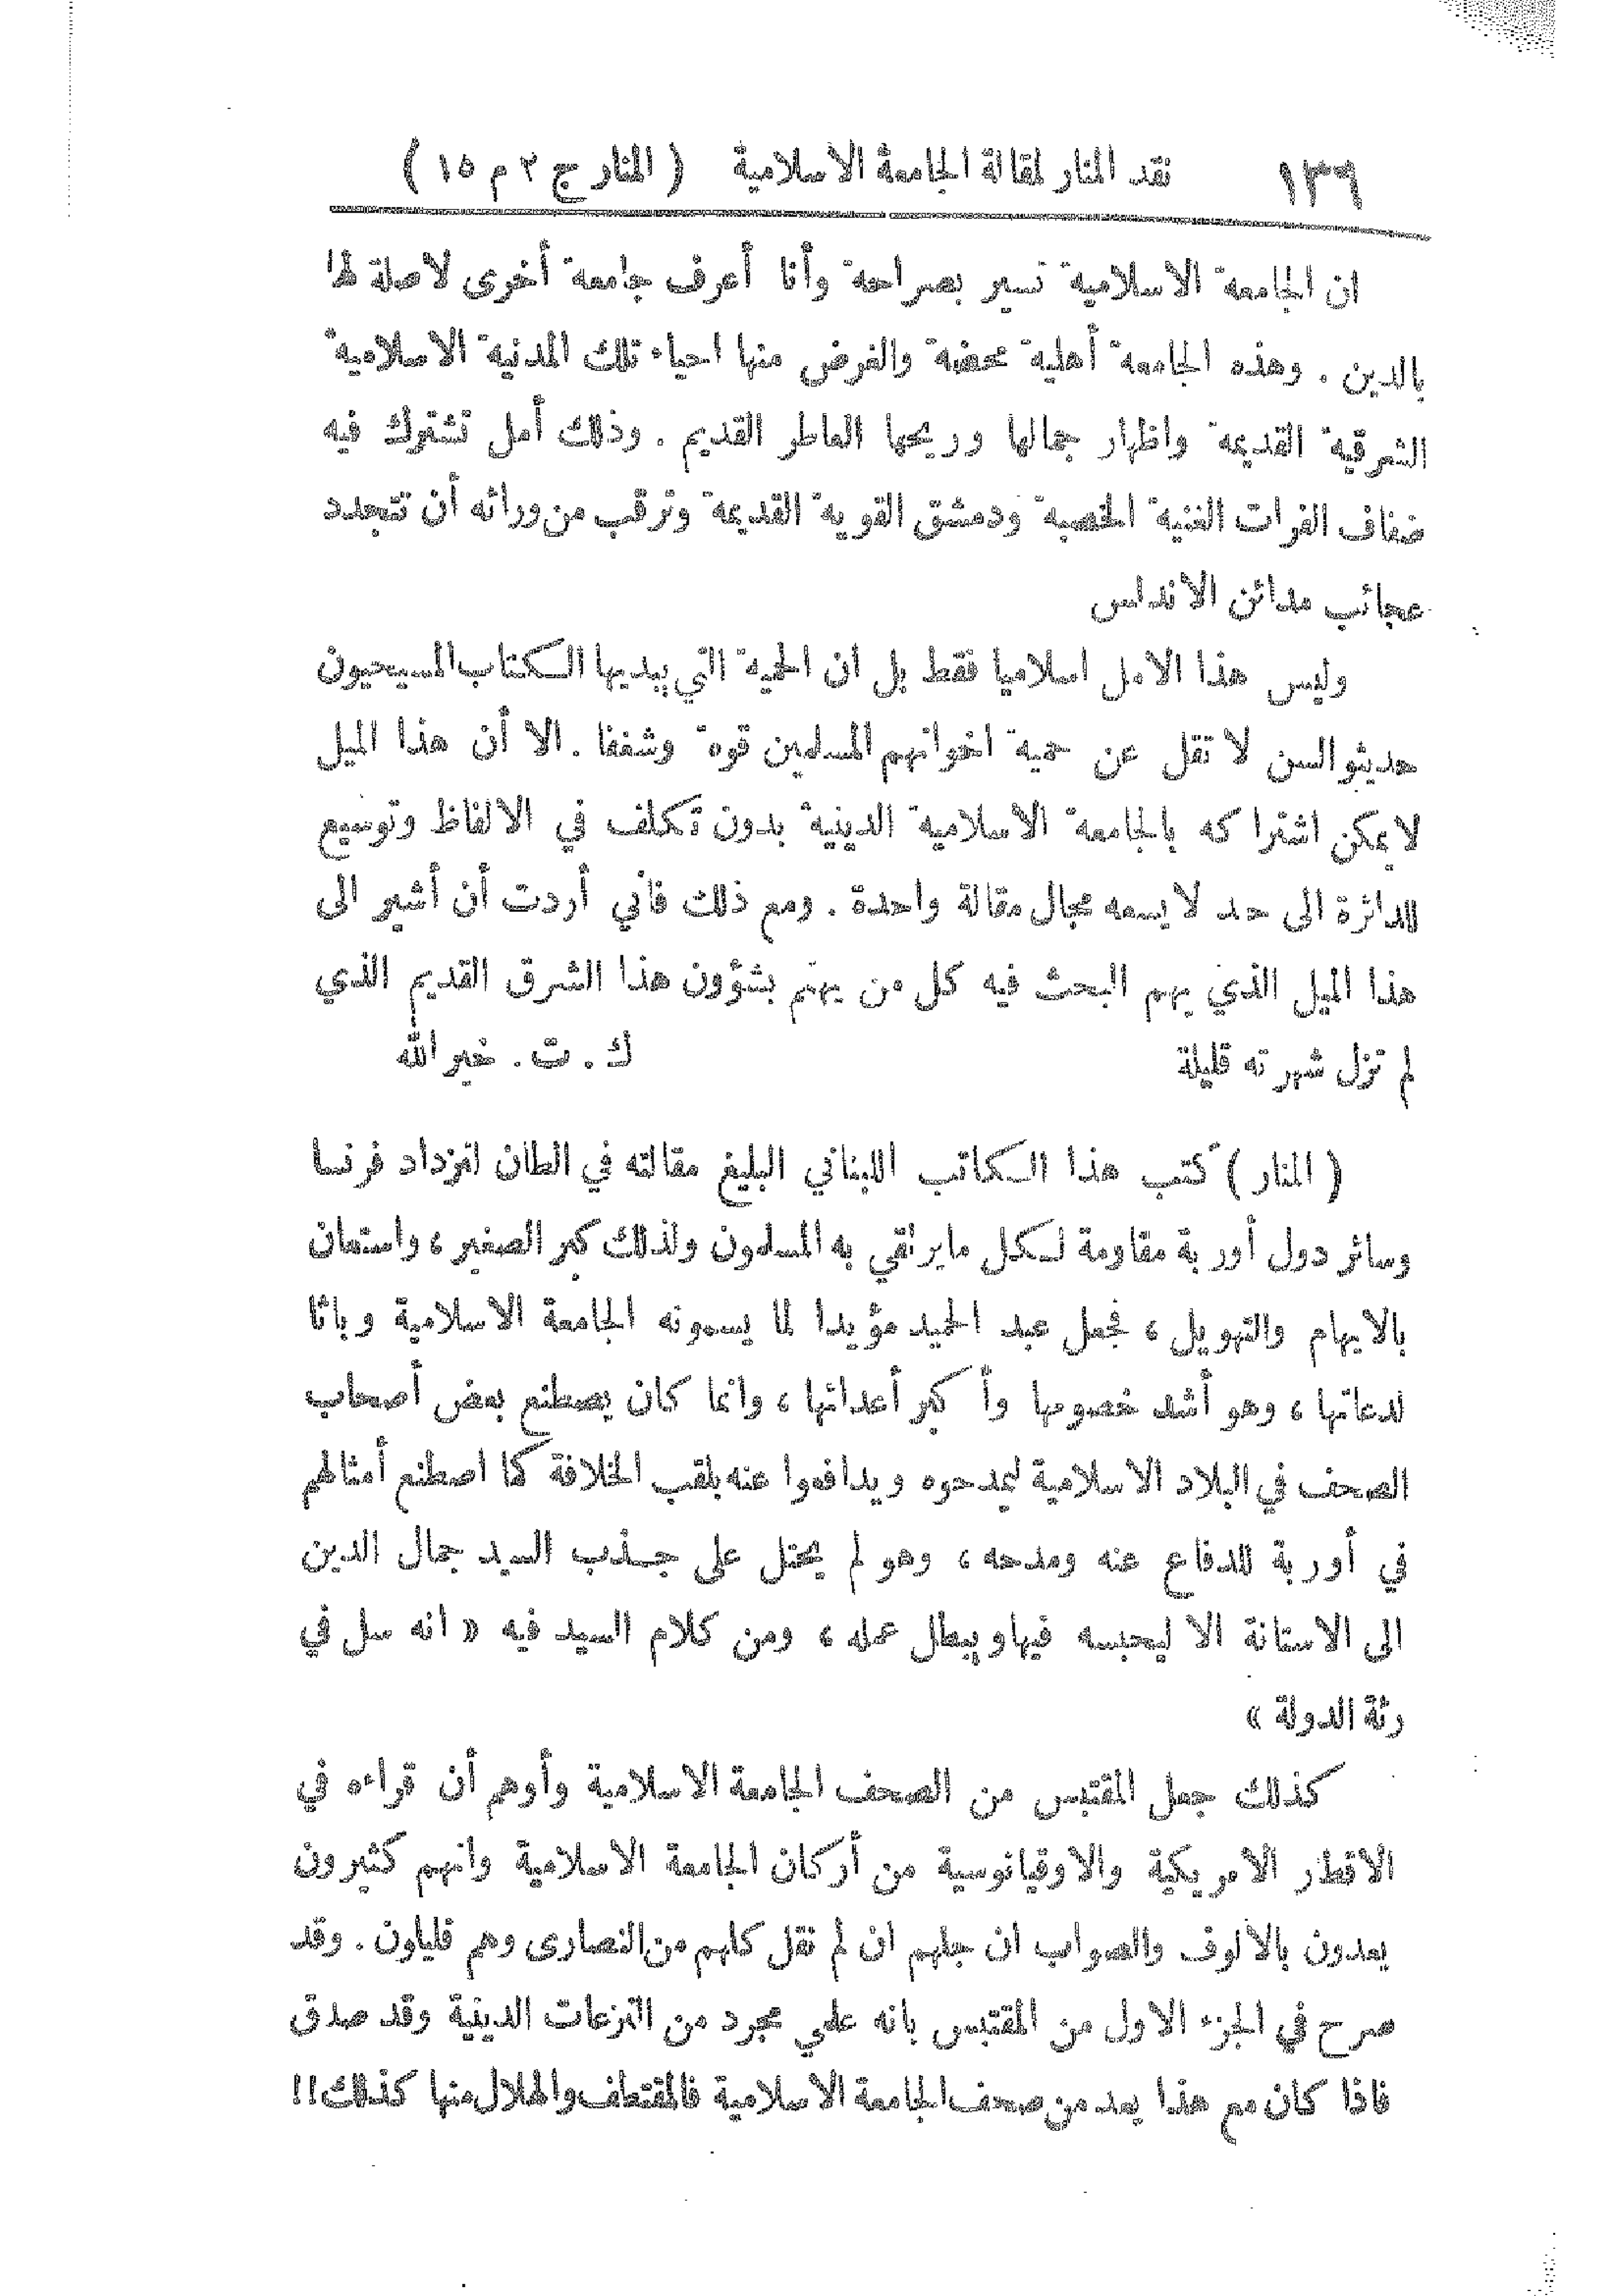 ١٣٦ نقد المنار لمقالة الجامعة الاسلامية ( المنار ج ٢ م ١٥ )
ان الجامعة الاسلامية تسير بصراحة وأنا أعرف جامعة أخرى لاصلة لها
بالدين . وهذه الجامعة أهلية محضة والغرض منها احياء تلك المدنية الاسلامية
الشرقية القديمة واظهار جمالها وريحها العاطر القديم . وذلك أمل تشترك فيه
ضفاف الفرات الغنية الخصبة ودمشق القوية القديمة وترقب من ورائه أن تتجدد
عجائب مدائن الاندلس
وليس هذا الامل اسلاميا فقط بل ان الحمية التي يبديها الكتاب المسيحيون
حديثو السن لا تقل عن حمية اخوانهم المسلمين قوة وشغفا . الا أن هذا الميل
لا يمكن اشتراكه بالجامعة الاسلامية الدينية بدون تكلف في الالفاظ وتوسيع
للدائرة الى حد لا يسعه مجال مقالة واحدة . ومع ذلك فاني أردت أن أشير الى
هذا الميل الذي يهم البحث فيه كل من يهتم بشؤون هذا الشرق القديم الذي
لم تزل شهرته قليلة ك . ت . خير الله
( المنار ) كتب هذا الكاتب اللبناني البليغ مقالته في الطان لتزداد فرنسا
وسائر دول أوربة مقاومة لكل مايرتقي به المسلمون ولذلك كبر الصغير ، واستعان
بالايهام والتهويل ، فجعل عبد الحميد مؤيدا لما يسمونه الجامعة الاسلامية وباثا
لدعاتها ، وهو أشد خصومها وأكبر أعدائها ، وانما كان يصطنع بعض أصحاب
الصحف في البلاد الاسلامية ليمدحوه ويدافعوا عنه بلقب الخلافة كما اصطنع أمثالهم
في أوربة للدفاع عنه ومدحه ، وهو لم يحتل على جذب السيد جمال الدين
الى الاستانة الا ليحبسه فيها ويبطل عمله ، ومن كلام السيد فيه « انه سل في
رئة الدولة »
كذلك جعل المقتبس من الصحف الجامعة الاسلامية وأوهم أن قراءه في
الاقطار الامريكية والاوقيانوسية من أركان الجامعة الاسلامية وانهم كثيرون
يعدون بالالوف والصواب ان جلهم ان لم نقل كلهم من النصارى وهم قليلون . وقد
صرح في الجزء الاول من المقتبس بانه علمي مجرد من النزعات الدينية وقد صدق
فاذا كان مع هذا يعد من صحف الجامعة الاسلامية فالمقتطف والهلال منها كذلك!!